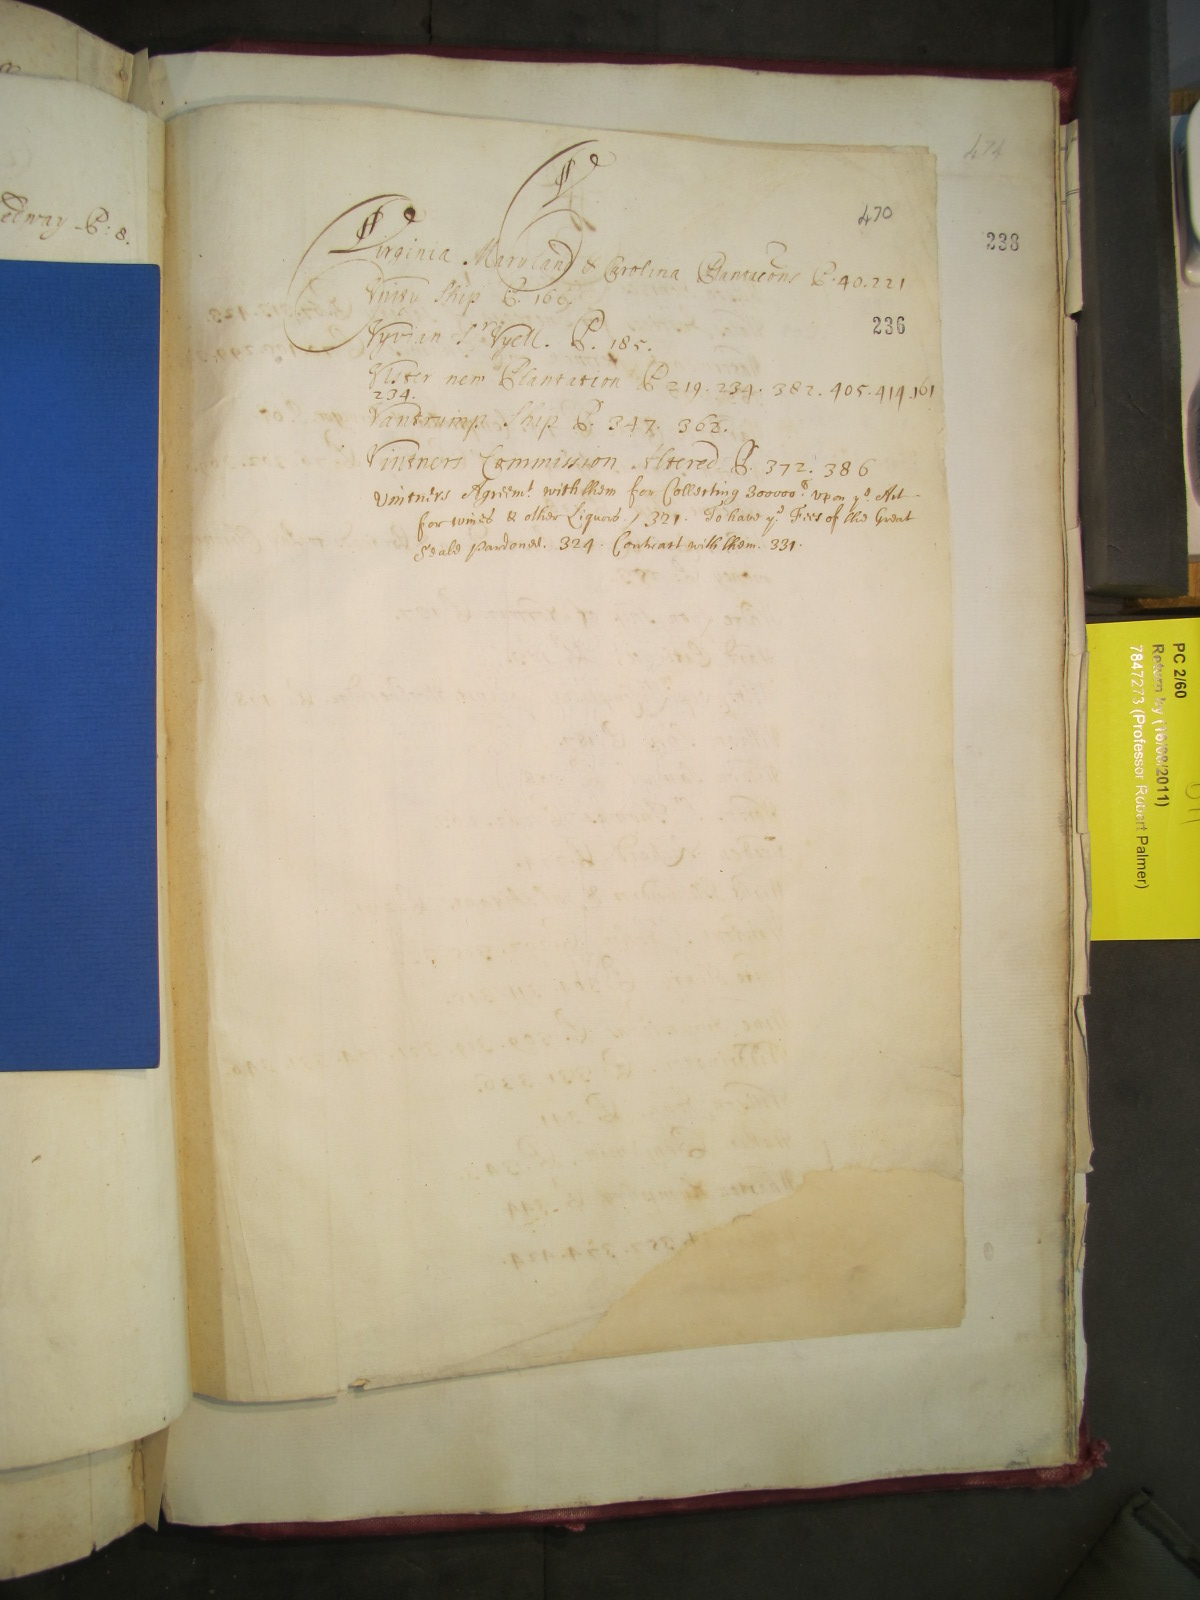 edway P: 8.
V
474
470
238
Virginia Maryland & Carolina Plantacons P. 40. 221
Vnity Ship P. 169.
236
Vyvian Sr. Vyell. P. 185.
Vlster new Plantation P 219. 234. 382. 405. 414. 161
234.
Vantrump Ship P. 347. 368.
Vintners Commission Altered P. 372. 386
Vintners Agreemt. with them for Collecting 300000l. vpon ye. Act
for wines & other Liquors / 321. To have ye. Fees of the Great
Seale pardoned. 324. Contract with them. 331.
PC 2/60
Return by (16/09/2011)
7847273 (Professor Robert Palmer)